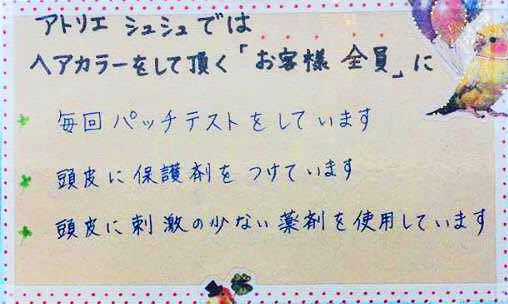 アトリエ シュシュでは
ヘアカラーをして頂く「お客様 全員」に
毎回パッチテストをしています
頭皮に保護剤をつけています
頭皮に刺激の少ない薬剤を使用しています